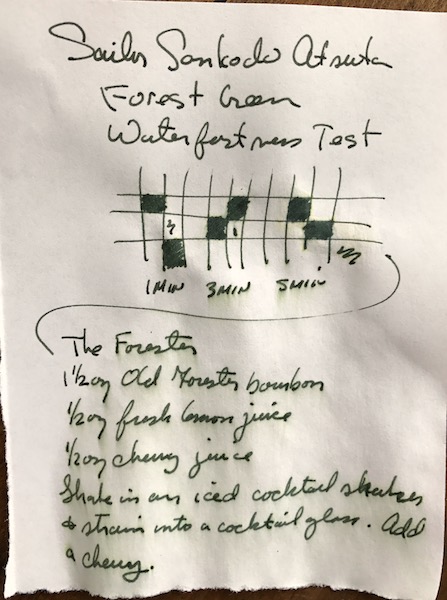 Sailor Sankodo Atsuta
Forest Green
Waterfastness Test
1 MIN 3 MIN 5 MIN
The Forester
1 1/2 oz Old Forester bourbon
1/2 oz fresh lemon juice
1/2 oz cherry juice
Shake in an iced cocktail shaker
& strain into a cocktail glass. Add
a cherry.